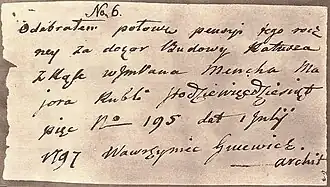 No 6.
Odebrałem połowę pensyi tego rocz
ney za dozor Budowy Ratusza
z Kassy w
Rubli stodziewięćdziesiąt
pięc No 195 dat 1 Julij
1797 Wawrzyniec Gucewicz
archit